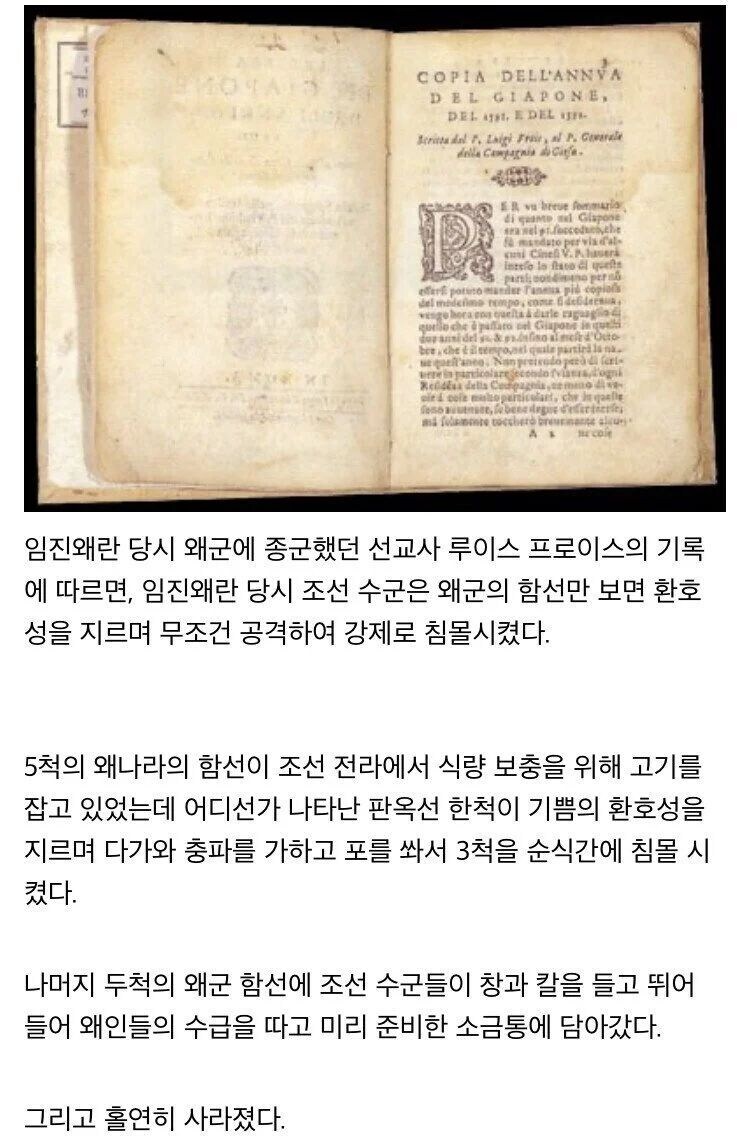 COPIA DELL'ANNVA
DEL GIAPONE,
DEL 1591. E DEL 1592.
Scritta dal P. Luigi Frois, al P. Generale
della Compagnia di Giesu.
PER vn breue sommario
di quanto nel Giapone
era nel 91. succeduto, che
fù mandato per via d'al-
cuni Cinesi V. P. hauerà
inteso lo stato di queste
parti; nondimeno per nō
essersi potuto mandar l'annua più copiosa
del medesimo tempo, come si desideraua,
vengo hora con questa à darle ragguaglio di
quello che è passato nel Giapone in questi
due anni del 91. & 92. infino al mese d'Otto-
bre, che è il tempo, nel quale partirà la na-
ue quest'anno. Non pretendo però di scri-
uere in particolare, secondo l'vsanza, d'ogni
Residēza della Compagnia, ne meno di ve-
nir à cose molto particolari, che in queste
sono auuenute, se bene degne d'esser intese;
mà solamente toccherò breuemente alcu-
A 2 ne cose
임진왜란 당시 왜군에 종군했던 선교사 루이스 프로이스의 기록
에 따르면, 임진왜란 당시 조선 수군은 왜군의 함선만 보면 환호
성을 지르며 무조건 공격하여 강제로 침몰시켰다.
5척의 왜나라의 함선이 조선 전라에서 식량 보충을 위해 고기를
잡고 있었는데 어디선가 나타난 판옥선 한척이 기쁨의 환호성을
지르며 다가와 충파를 가하고 포를 쏴서 3척을 순식간에 침몰 시
켰다.
나머지 두척의 왜군 함선에 조선 수군들이 창과 칼을 들고 뛰어
들어 왜인들의 수급을 따고 미리 준비한 소금통에 담아갔다.
그리고 홀연히 사라졌다.